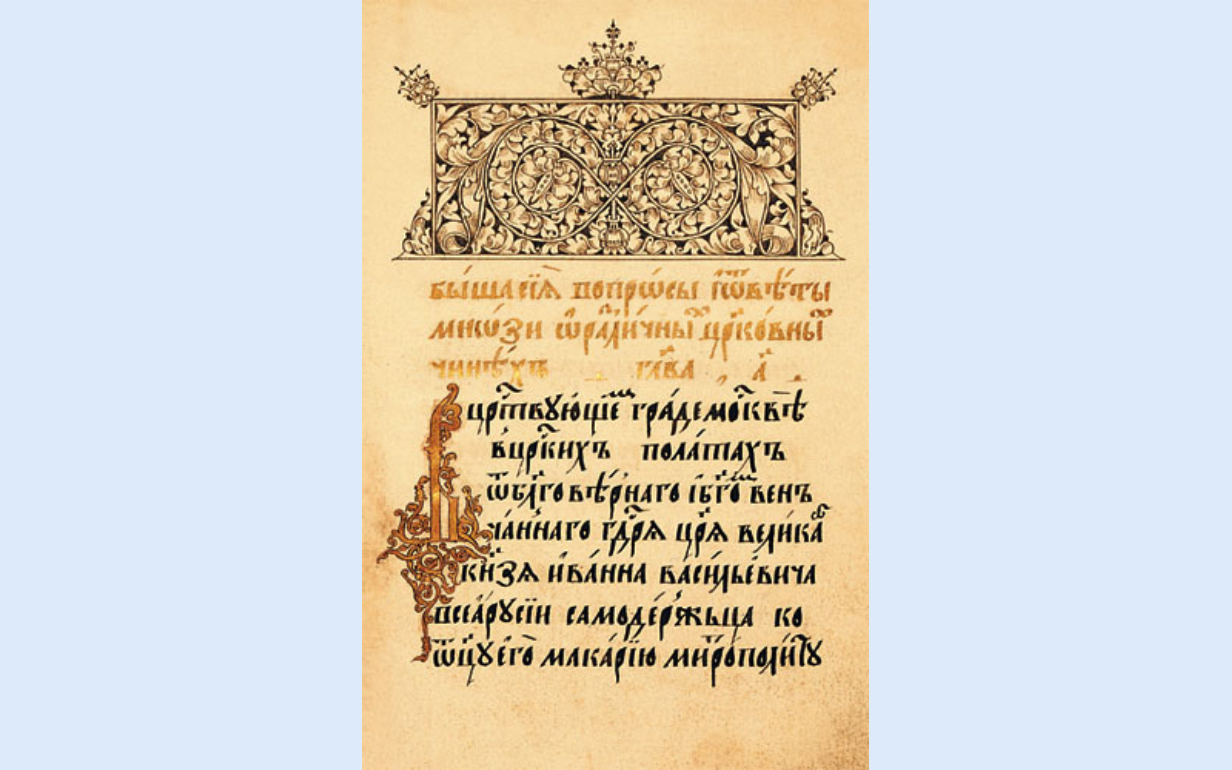 бы́ша сїѧ̀ вопрѡсы і҆ѿвѣ́ты
мнѡ́ѕи ѡ҆ разли́чны црк҃о́вны
чинѣ́хъ гл҃ва̀ . а҃ .
Вцр҃ствꙋ́ющїе гра́де москвѣ̀
вцр҃кихъ пола́тахъ
ѿ бл҃говѣ́рнаго і҆ бг҃овен
ча́ннаго гдр҃ѧ цр҃ѧ вели́ка
кн҃ѕѧ и҆ва́нна васи́льевича
всеа̀ рꙋсїи самоде́ржьца ко
ѿц҃ꙋ є҆го̀ мака́рїю митрополи́тꙋ